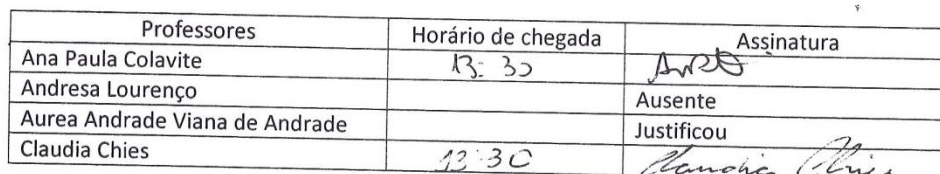 Professores Horário de chegada Assinatura
Ana Paula Colavite 13:30
Andresa Lourenço Ausente
Aurea Andrade Viana de Andrade Justificou
Claudia Chies 13:30 Claudia Chies